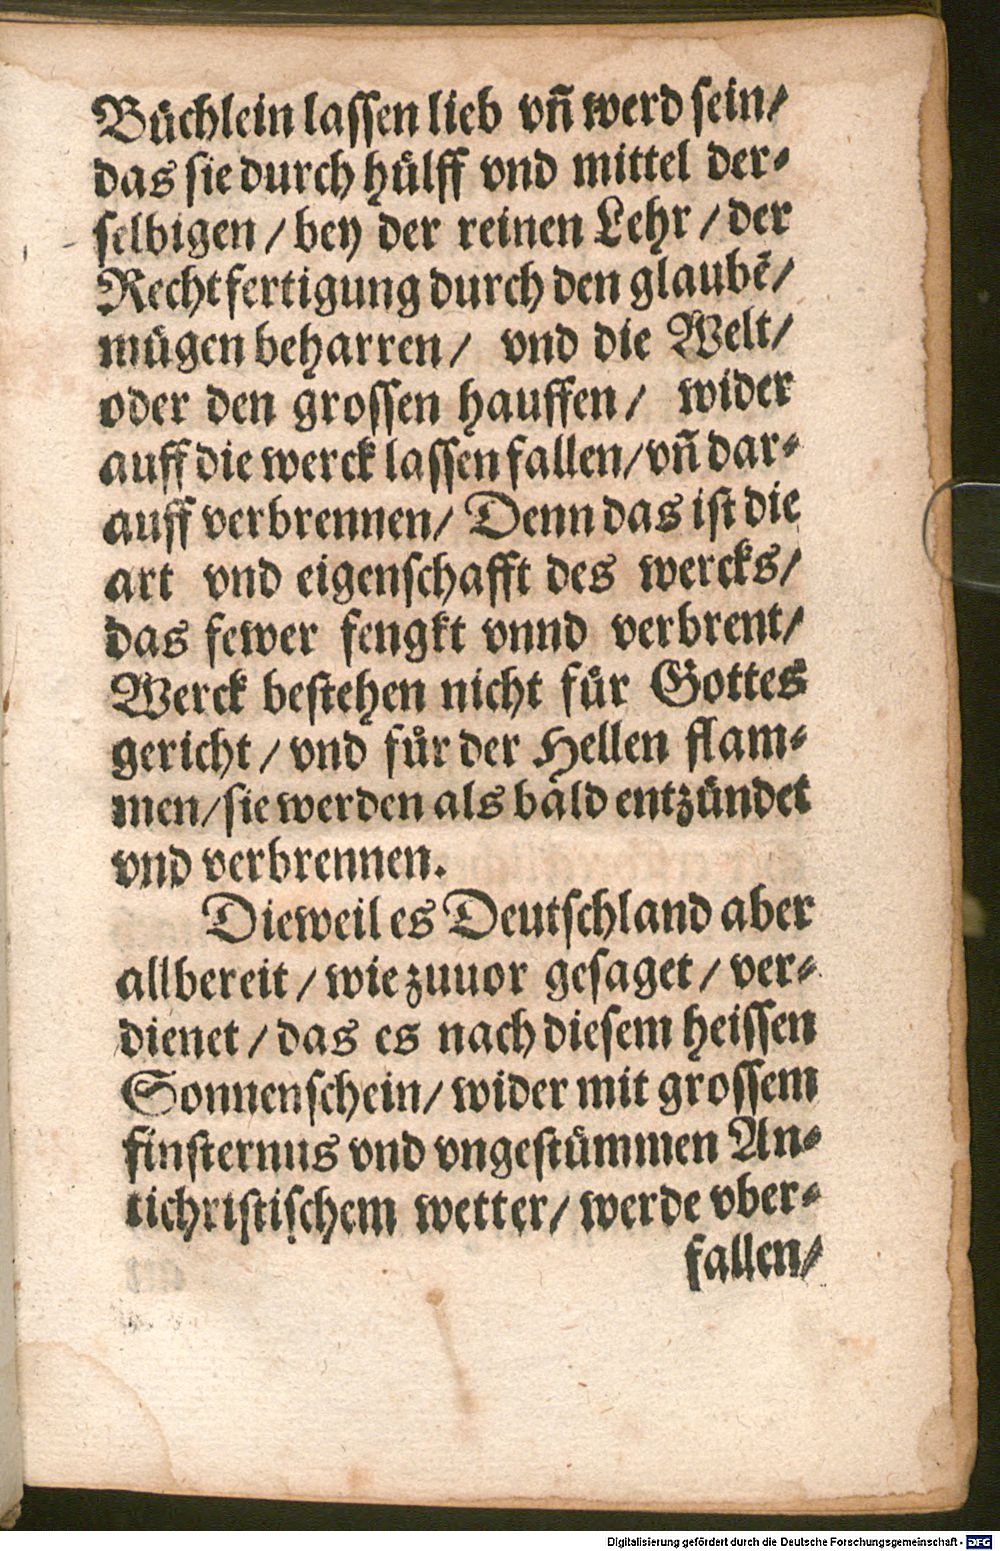 Büchlein lassen lieb vñ werd sein/
das sie durch hülff vnd mittel der-
selbigen / bey der reinen Lehr / der
Rechtfertigung durch den glaubẽ/
mügen beharren / vnd die Welt/
oder den grossen hauffen / wider
auff die werck lassen fallen/vñ dar-
auff verbrennen/ Denn das ist die
art vnd eigenschafft des wercks/
das fewer fengkt vnnd verbrent/
Werck bestehen nicht für Gottes
gericht / vnd für der Hellen flam-
men/sie werden als bald entzündet
vnd verbrennen.
Dieweil es Deutschland aber
allbereit / wie zuuor gesaget / ver-
dienet / das es nach diesem heissen
Sonnenschein/ wider mit grossem
finsternus vnd vngestümmen An-
tichristischem wetter/ werde vber-
fallen/
Digitalisierung gefördert durch die Deutsche Forschungsgemeinschaft - DFG